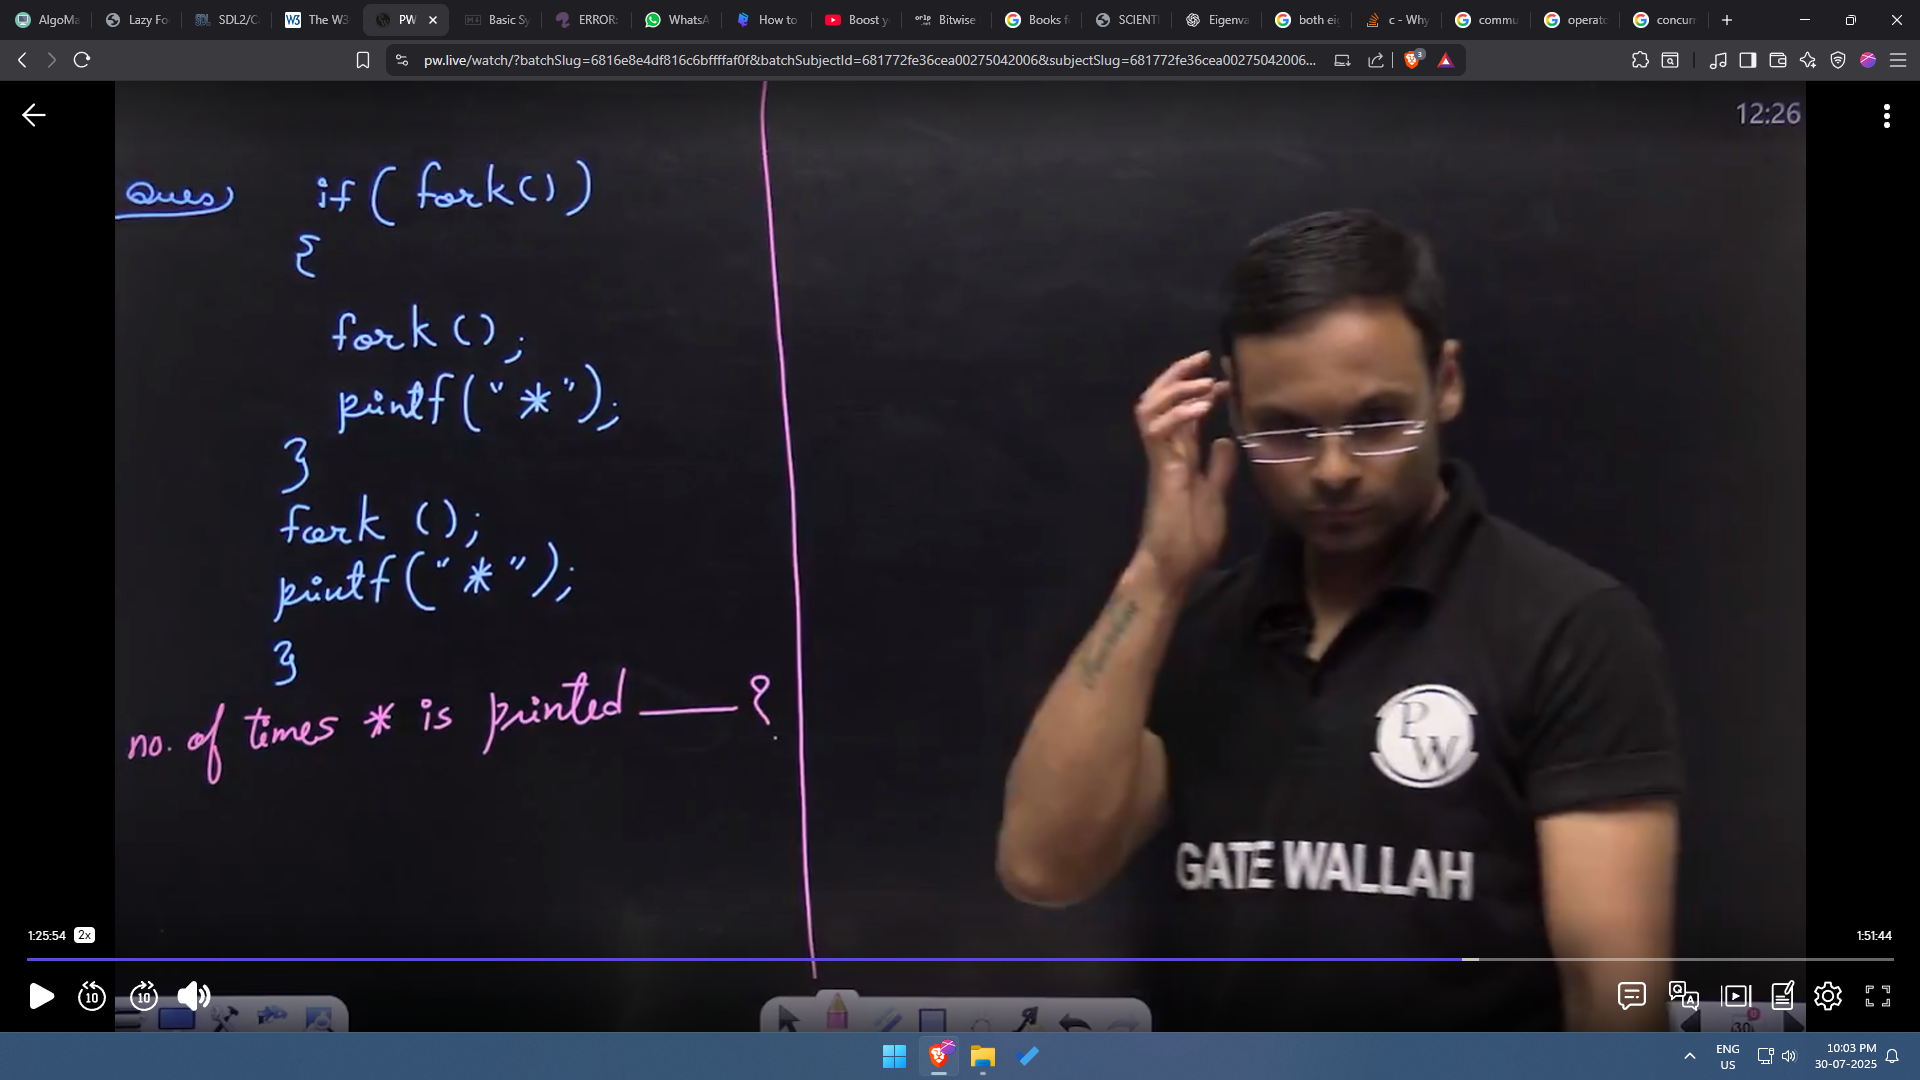 AlgoMa
Lazy Fo
SDL2/C
The W3
PW
Basic Sy
ERROR:
WhatsA
How to
Boost y
Bitwise
Books f
SCIENTI
Eigenva
both eig
c - Why
commu
operato
concurr
pw.live/watch/?batchSlug=6816e8e4df816c6bffffaf0f&batchSubjectId=681772fe36cea00275042006&subjectSlug=681772fe36cea00275042006...
3
12:26
Ques) if ( fork() )
{
fork ();
printf ( "*" );
}
fork ();
printf ( "*" );
}
no. of times * is printed ____ ?
PW
GATE WALLAH
1:25:54 2x
1:51:44
10
10
Q A
30
ENG
US
10:03 PM
30-07-2025